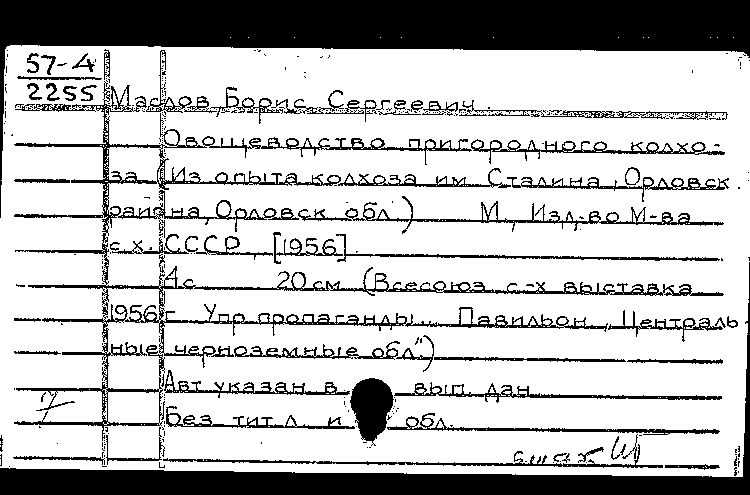 57-4
2255
Маслов, Борис Сергеевич.
Овощеводство пригородного колхо-
за (Из опыта колхоза им Сталина, Орловск.
района, Орловск обл.) М., Изд-во М-ва
с.х. СССР, [1956].
4с 20 см (Всесоюз с-х выставка
1956 г Упр пропаганды.. Павильон „Централь-
ные черноземные обл.")
Авт указан в вып. дан
Без тит л. и обл.